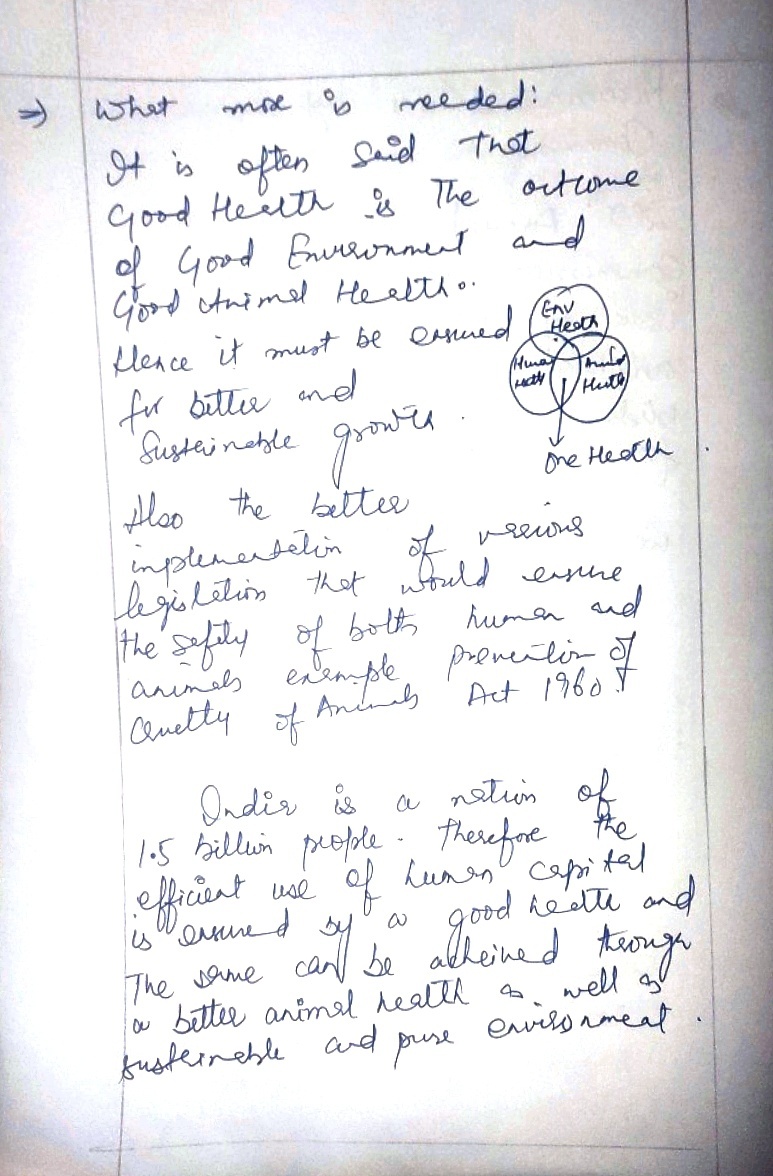 ⇒ What more is needed:
It is often said that
Good Health is the outcome
of Good Environment and
Good Animal Health.
Hence it must be ensured
for better and
Sustainable growth.
Env
Health
Human
Health
Animal
Health
One Health
Also the better
implementation of various
legislation that would ensure
the safety of both human and
animals example prevention of
Cruelty of Animals Act 1960.
India is a nation of
1.5 billion people. Therefore the
efficient use of human capital
is ensured by a good health and
The same can be acheived through
a better animal health as well as
sustainable and pure environment.